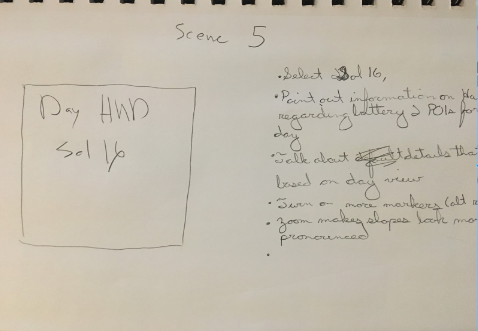 Scene 5
Day HUD
Sol 16
• Select Sol 16,
• Point out information on
regarding battery & POIs for
day
• Talk about details
based on day view
• Turn on more markers (alt
• Zoom makes slopes look
pronounced
•